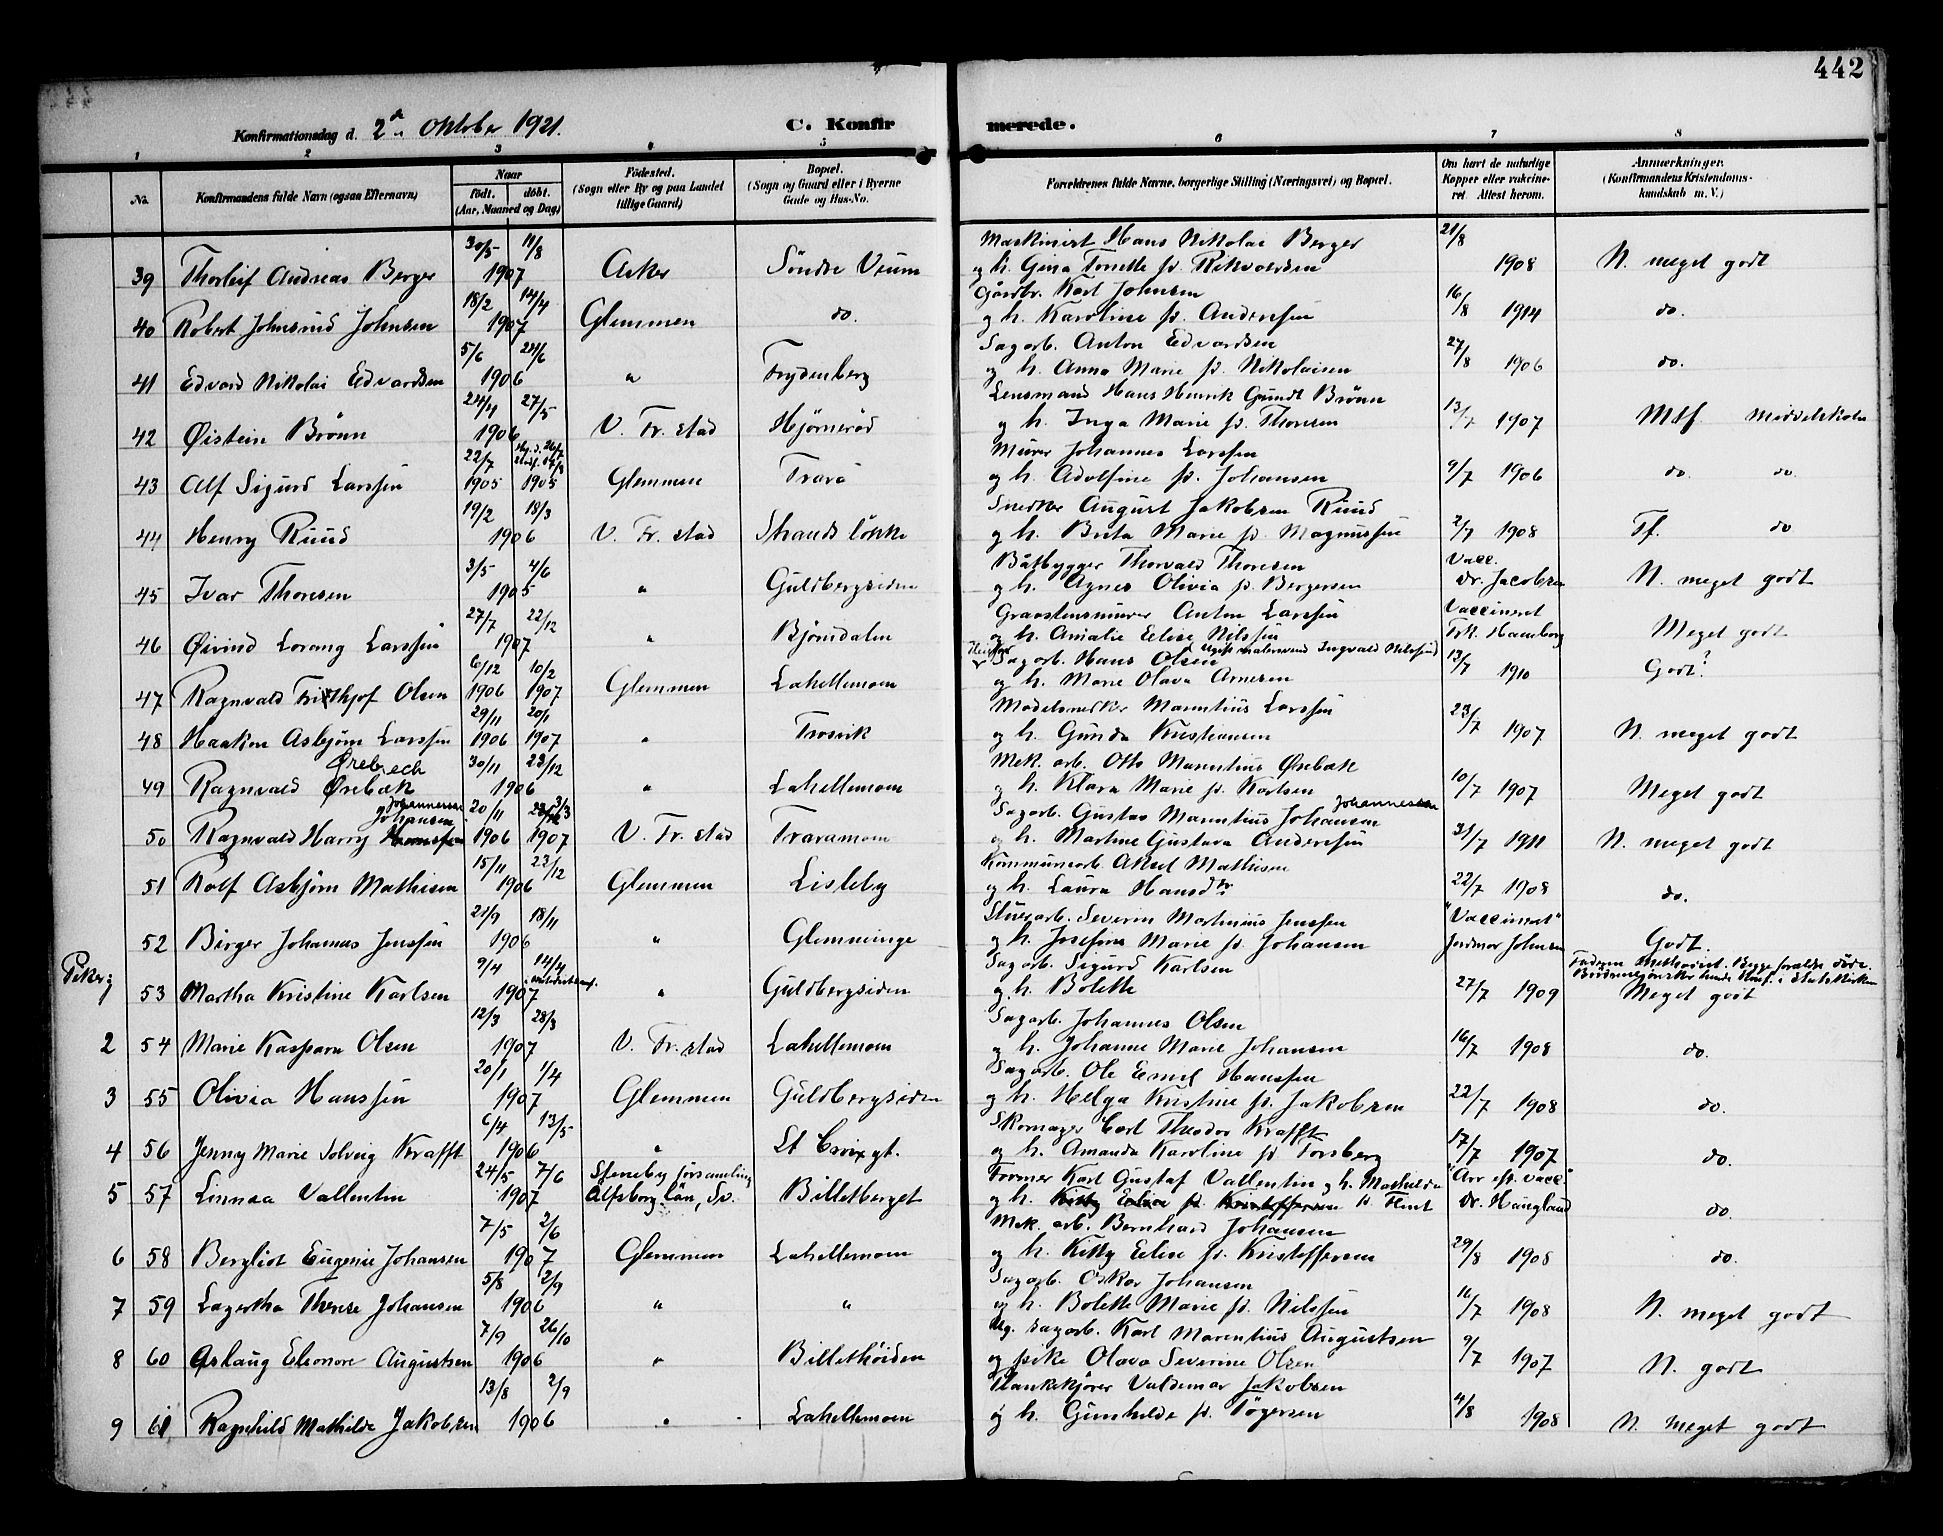 442
Konfirmationsdag d. 2den Oktober 1921. C. Konfirmerede.
1 2 3 4 5 6 7 8
No. Konfirmandens fulde Navn (ogsaa Efternavn) Naar født. døbt. (Aar, Maaned og Dag) Fødested. (Sogn eller By og paa Landet tillige Gaard) Bopæl. (Sogn og Gaard eller i Byerne Gade og Hus-No. Forældrenes fulde Navne, borgerlige Stilling (Næringsvei) og Bopæl. Om havt de naturlige Kopper eller vakcineret Attest herom. Anmærkninger. (Konfirmandens Kristendomskundskab m. V.)
30/5 11/8 Maskinist Hans Nikolai Berger 21/8
39 Thorleif Andreas Berger 1907 Asker Söndre Veum og h. Gina Tonette f. Rikvardsen 1908 N. meget godt
18/2 14/4 Gårdbr. Karl Johnsen 16/8
40 Robert Johnsrud Johnsen 1907 Glemmen do. og h. Karoline f. Anderssen 1914 do.
5/6 24/6 Sagarb. Anton Edvardsen 27/8
41 Edvard Nikolai Edvardsen 1906 " Frydenberg og h. Anna Marie f. Nikolaisen 1906 do.
24/4 27/5 Lensmand Hans Henrik Gundt Brönn 13/7
42 Øistein Brönn 1906 V. Fr.stad Hjørnerød og h. Inga Marie f. Thoresen 1907 Mtf. Middelskolen
22/7 Hj.d. 26/7 Stadf. Murer Johannes Larssen
43 Alf Sigurd Larssen 1905 1905 Glemmen Trara og h. Adolfine f. Johansen 9/7 1906 do. do.
19/2 18/3 Snedker August Jakobsen Ruud
44 Henry Ruud 1906 V. Fr.stad Strandsløkke og h. Brita Marie f. Magnussen 2/7 1908 Tf. do
3/5 4/6 Båtbygger Thorvald Thoresen Vacc.
45 Ivar Thoresen 1905 " Guldbergsiden og h. Agnes Olivia f. Bergersen Dr. Jacobsen N. meget godt
27/7 22/12 Graastensmurer Anton Larssen Vaccineret
46 Øivind Lorang Larssen 1907 " Björndalen og h. Amalie Elise Nilssen Frk. Hamborg Meget godt
6/12 10/2 Sagarb. Hans Olsen Ugift malersvend Ingvald Nilssen 13/7
47 Ragnvald Frithjof Olsen 1906 1907 Glemmen Lahellemoen og h. Marie Olava Arnesen 1910 Godt?
29/11 20/1 Modelsnedker Marentius Larssen 23/7
48 Haakon Asbjørn Larssen 1906 1907 " Trosvik og h. Gunda Kristiansen 1907 N. meget godt
Ørebech 30/11 23/12 Mek. arb. Otto Marentius Ørebæk
49 Ragnvald Ørebæk 1906 " Lahellemoen og h. Klara Marie f. Karlsen 10/7 1907 Meget godt
Johannessen Johansen 20/11 3/3 Sagarb. Gustav Marentius Johansen Johannessen
50 Ragnvald Harry 1906 1907 V. Fr.stad Traramoen og h. Martine Gustava Anderssen 31/7 1911 N. meget godt
15/11 23/12 Kommunearb. Aksel Mathisen
51 Rolf Asbjørn Mathisen 1906 Glemmen Lisleby og h. Laura Hansdtr 22/7 1908 do.
21/9 18/11 Stuerarb. Severin Martinius Jenssen "Vaccineret"
52 Birger Johannes Jenssen 1906 " Glemminge og h. Josefine Marie f. Johansen Jordmor Johnsen Godt.
Piker 9/4 14/4 Sagarb. Sigurd Karlsen Faderen Methodist. Begge forældre döde.
1 53 Martha Kristine Karlsen 1907 " Guldbergsiden og h. Bolette 27/7 1909 Meget godt
12/3 28/3 Sagarb. Johannes Olsen
2 54 Marie Kaspara Olsen 1907 V. Fr.stad Lahellemoen og h. Johanne Marie Johansen 16/7 1908 do.
20/1 1/4 Sagarb. Ole Emil Hanssen
3 55 Olivia Hanssen 1907 Glemmen Guldbergsiden og h. Helga Kristine f. Jakobsen 22/7 1908 do.
6/4 13/5 Skomager Carl Theodor Krafft
4 56 Jenny Marie Solveig Krafft 1906 " St Croixgt. og h. Amanda Karoline f. Torsberg 17/7 1907 do.
24/5 7/6 Steneby församling Former Karl Gustaf Vallentin og h. Mathilda "Arr eft. vacc."
5 57 Linnea Vallentin 1907 Alfsborg län, Sv. Billetberget og h. Kitty Elise f. Kristoffersen f. Flint Dr. Haugland do.
7/5 2/6 Mek. arb. Bernhard Johansen
6 58 Bergliot Eugenie Johansen 1907 Glemmen Lahellemoen og h. Kitty Elise f. Kristoffersen 29/8 1908 do.
5/8 2/9 Sagarb. Oskar Johansen
7 59 Lagertha Therese Johansen 1906 " " og h. Bolette Marie f. Nilssen 16/7 1908 N. meget godt
7/9 26/10 Ug. sagarb. Karl Marentius Augustsen
8 60 Aslaug Eleonore Augustsen 1906 " Billethöiden og pike Olava Severine Olsen 9/7 1907 N. godt
13/8 2/9 Plankekjörer Valdemar Jakobsen
9 61 Ragnhild Mathilde Jakobsen 1906 " Lahellemoen og h. Gunhilde f. Tögersen 4/8 1908 N. meget godt